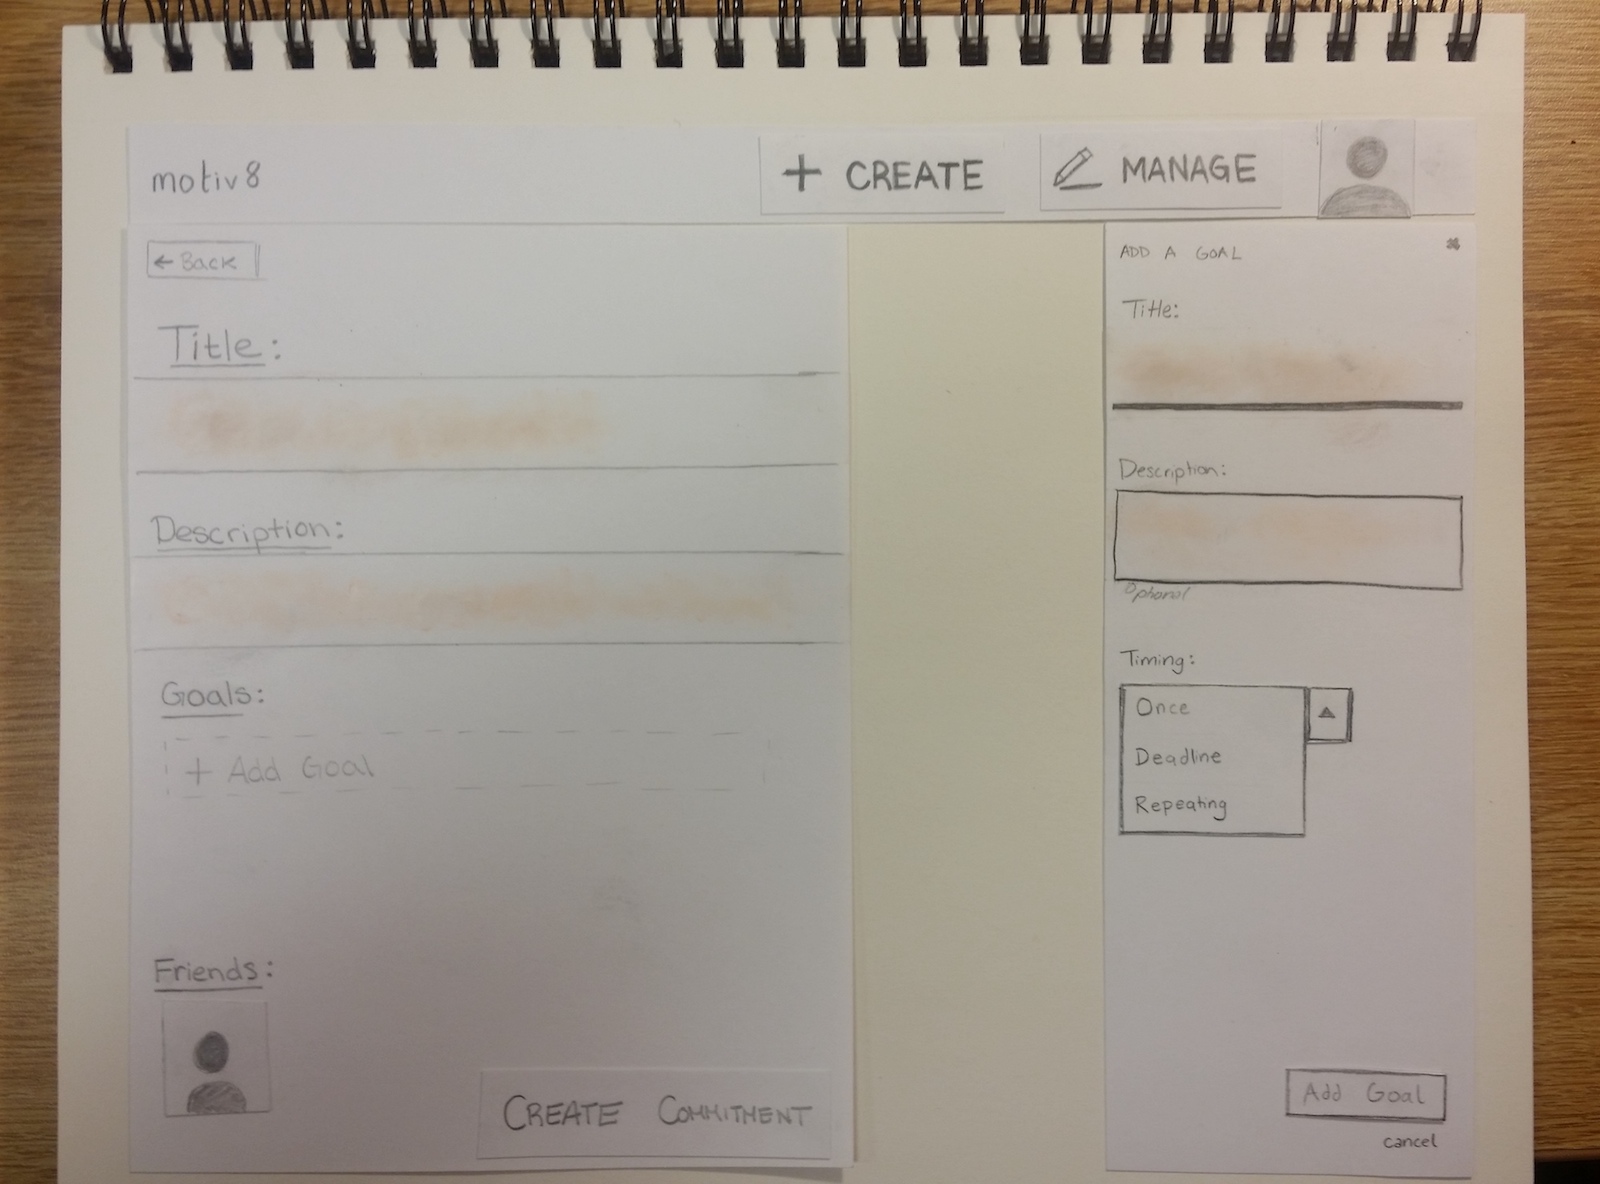 motiv8
+ CREATE
MANAGE
← Back
Title:
Description:
Goals:
+ Add Goal
Friends:
CREATE COMMITMENT
ADD A GOAL
Title:
Description:
Optional
Timing:
Once
Deadline
Repeating
Add Goal
cancel